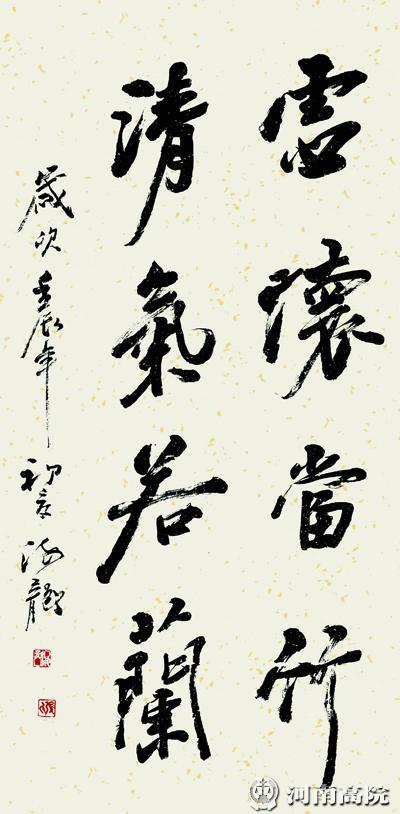 虛懷當竹
清氣若蘭
歲次壬辰年初夏海龍
河南高院